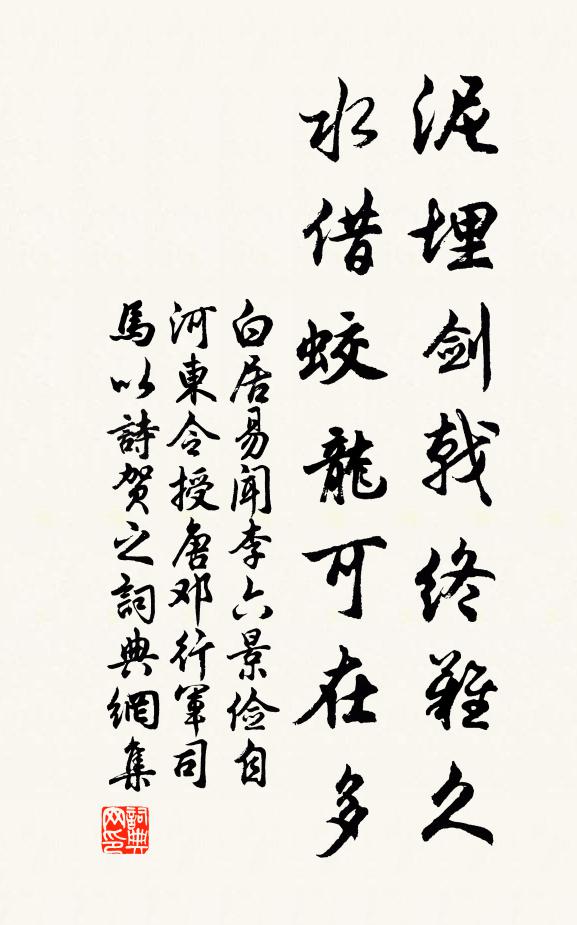 泥埋剑戟终難久
水借蛟龍可在多
白居易聞李六景俭自
河東令授唐邓行軍司
馬以詩贺之詞典網集
詞典网印